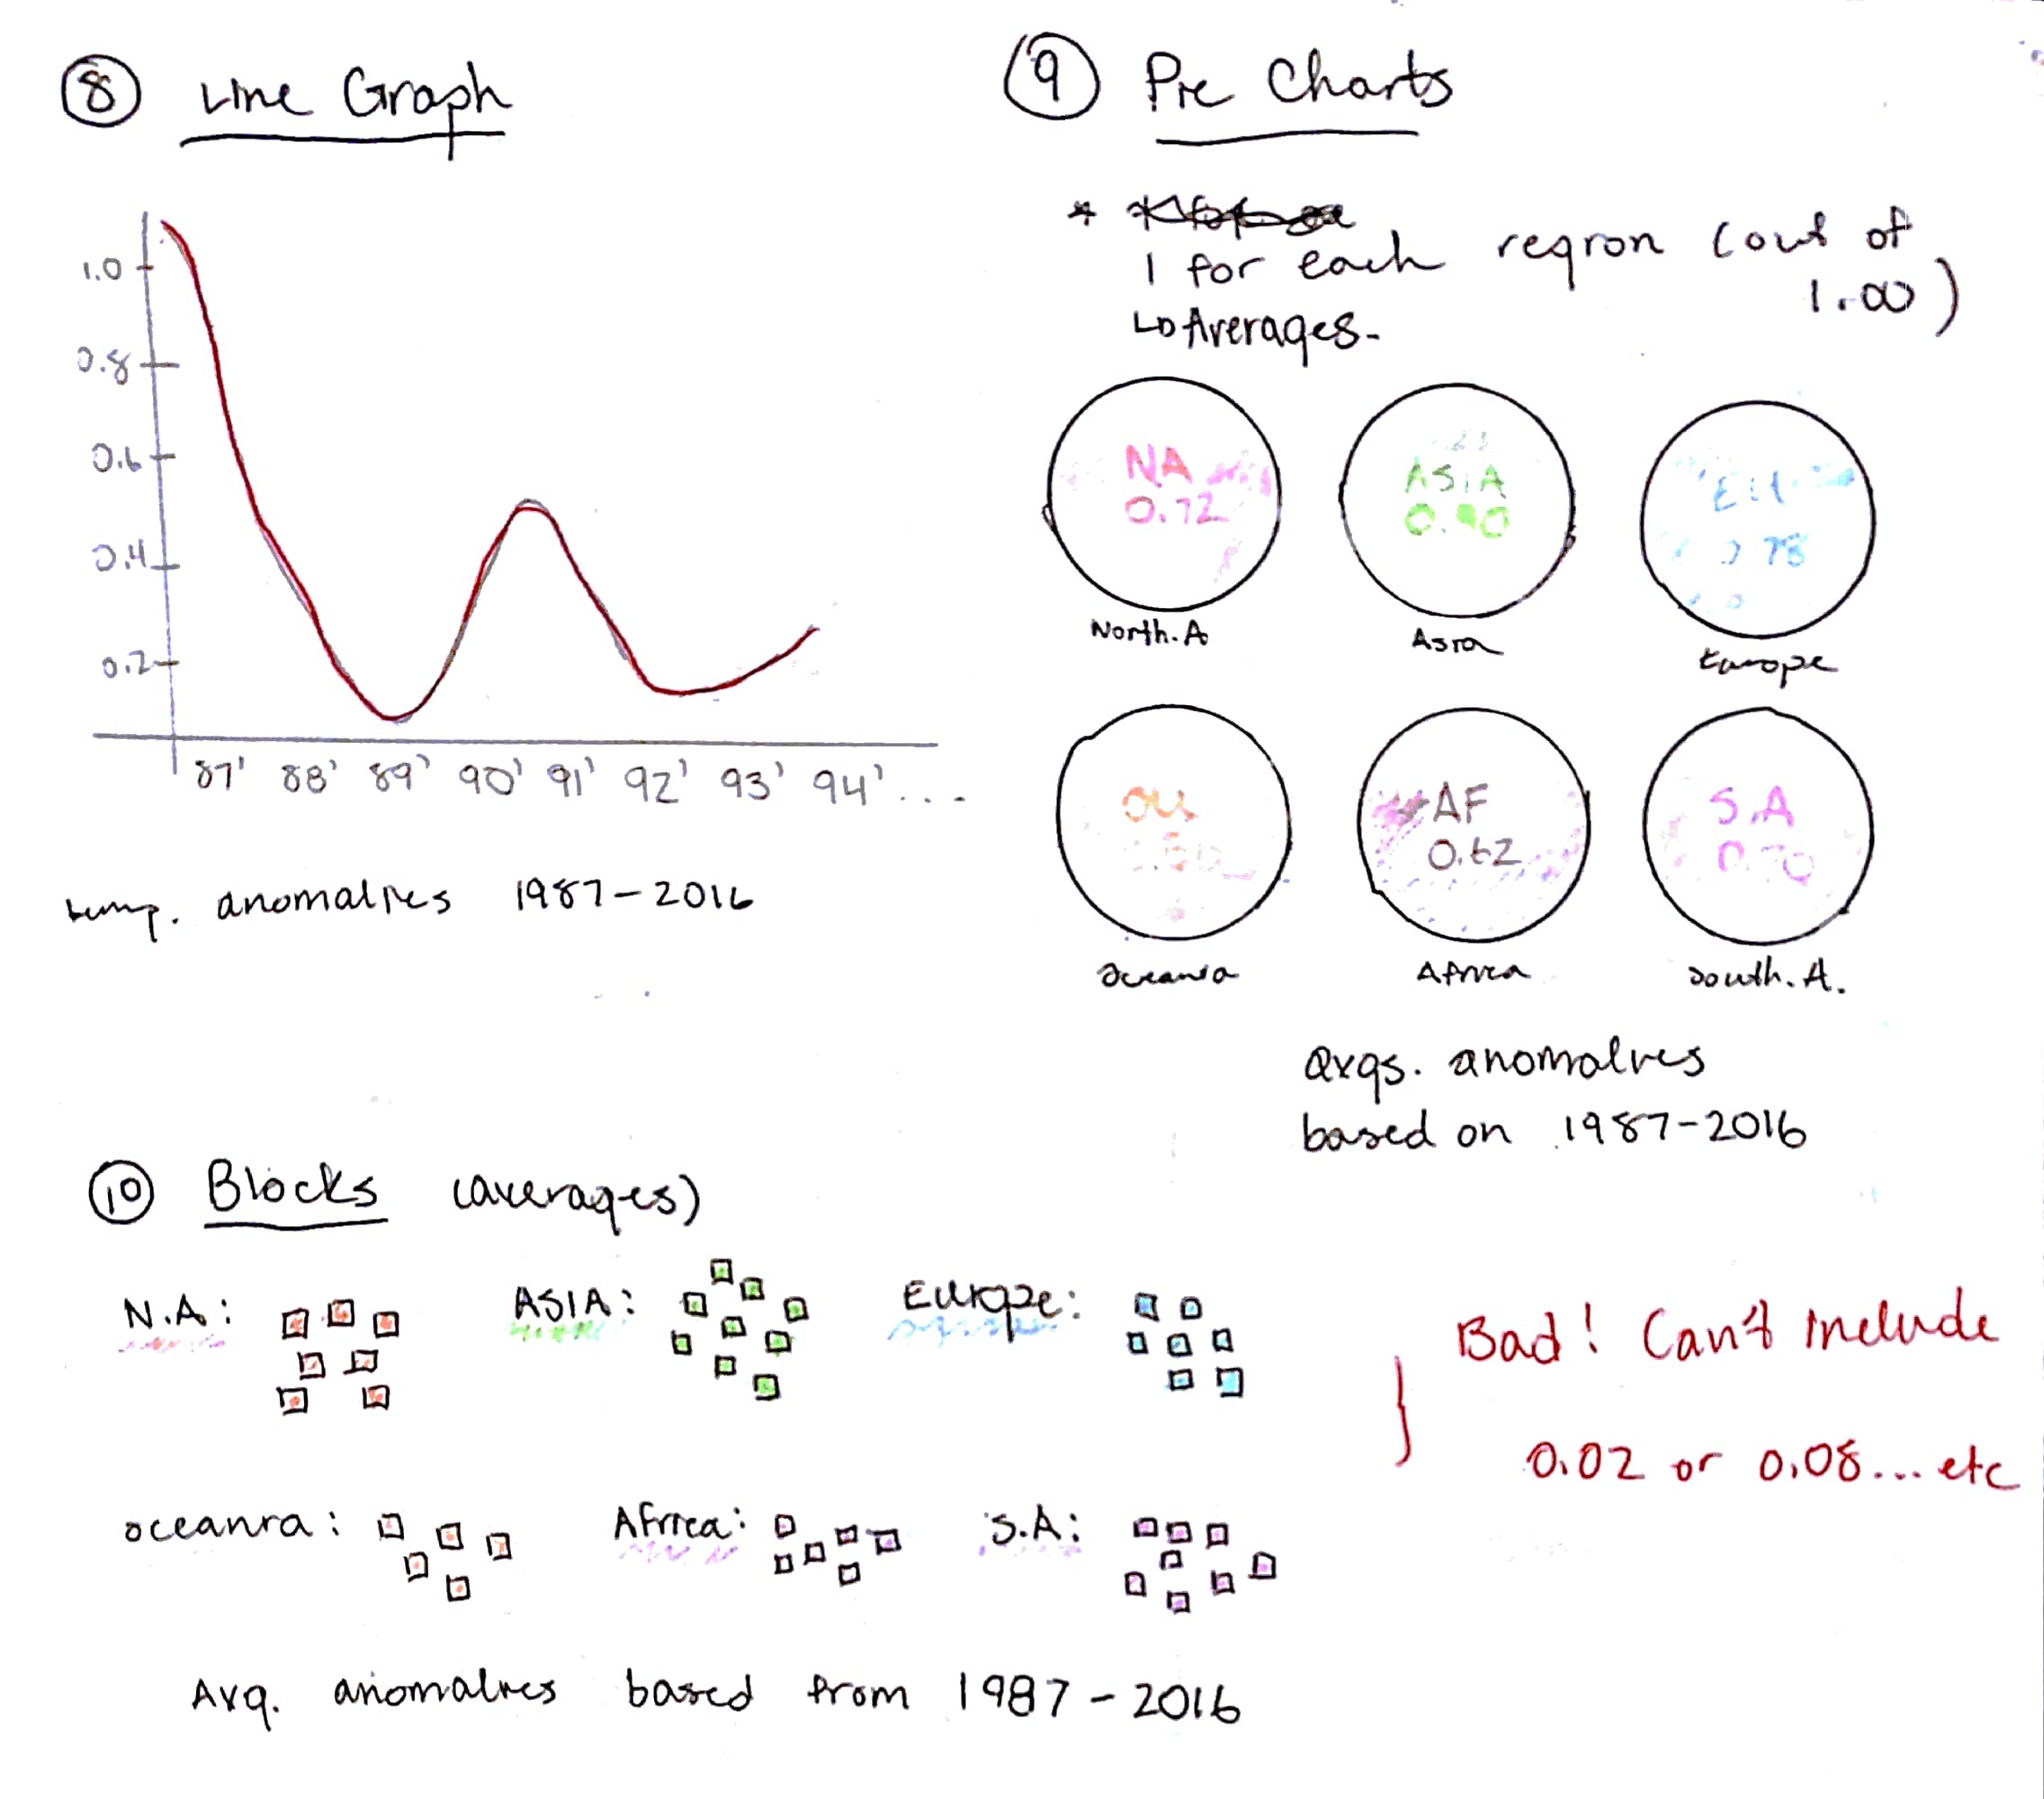 8 Line Graph
1.0
0.8
0.6
0.4
0.2
87' 88' 89' 90' 91' 92' 93' 94'...
temp. anomalies 1987-2016
9 Pie Charts
* 1 for each region (out of
1.00)
Averages.
NA
0.72
North.A
ASIA
0.90
Asia
EU
0.78
Europe
OU
Oceania
AF
0.62
Africa
S.A
0.70
South.A.
avgs. anomalies
based on 1987-2016
10 Blocks (averages)
N.A: ASIA: Europe:
Bad! Can't include
0.02 or 0.08... etc
oceania: Africa: S.A:
Avg. anomalies based from 1987-2016